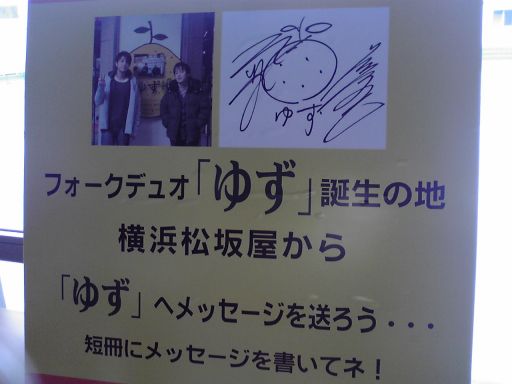 ゆず
ゆず
フォークデュオ「ゆず」誕生の地
横浜松坂屋から
「ゆず」へメッセージを送ろう・・・
短冊にメッセージを書いてネ！